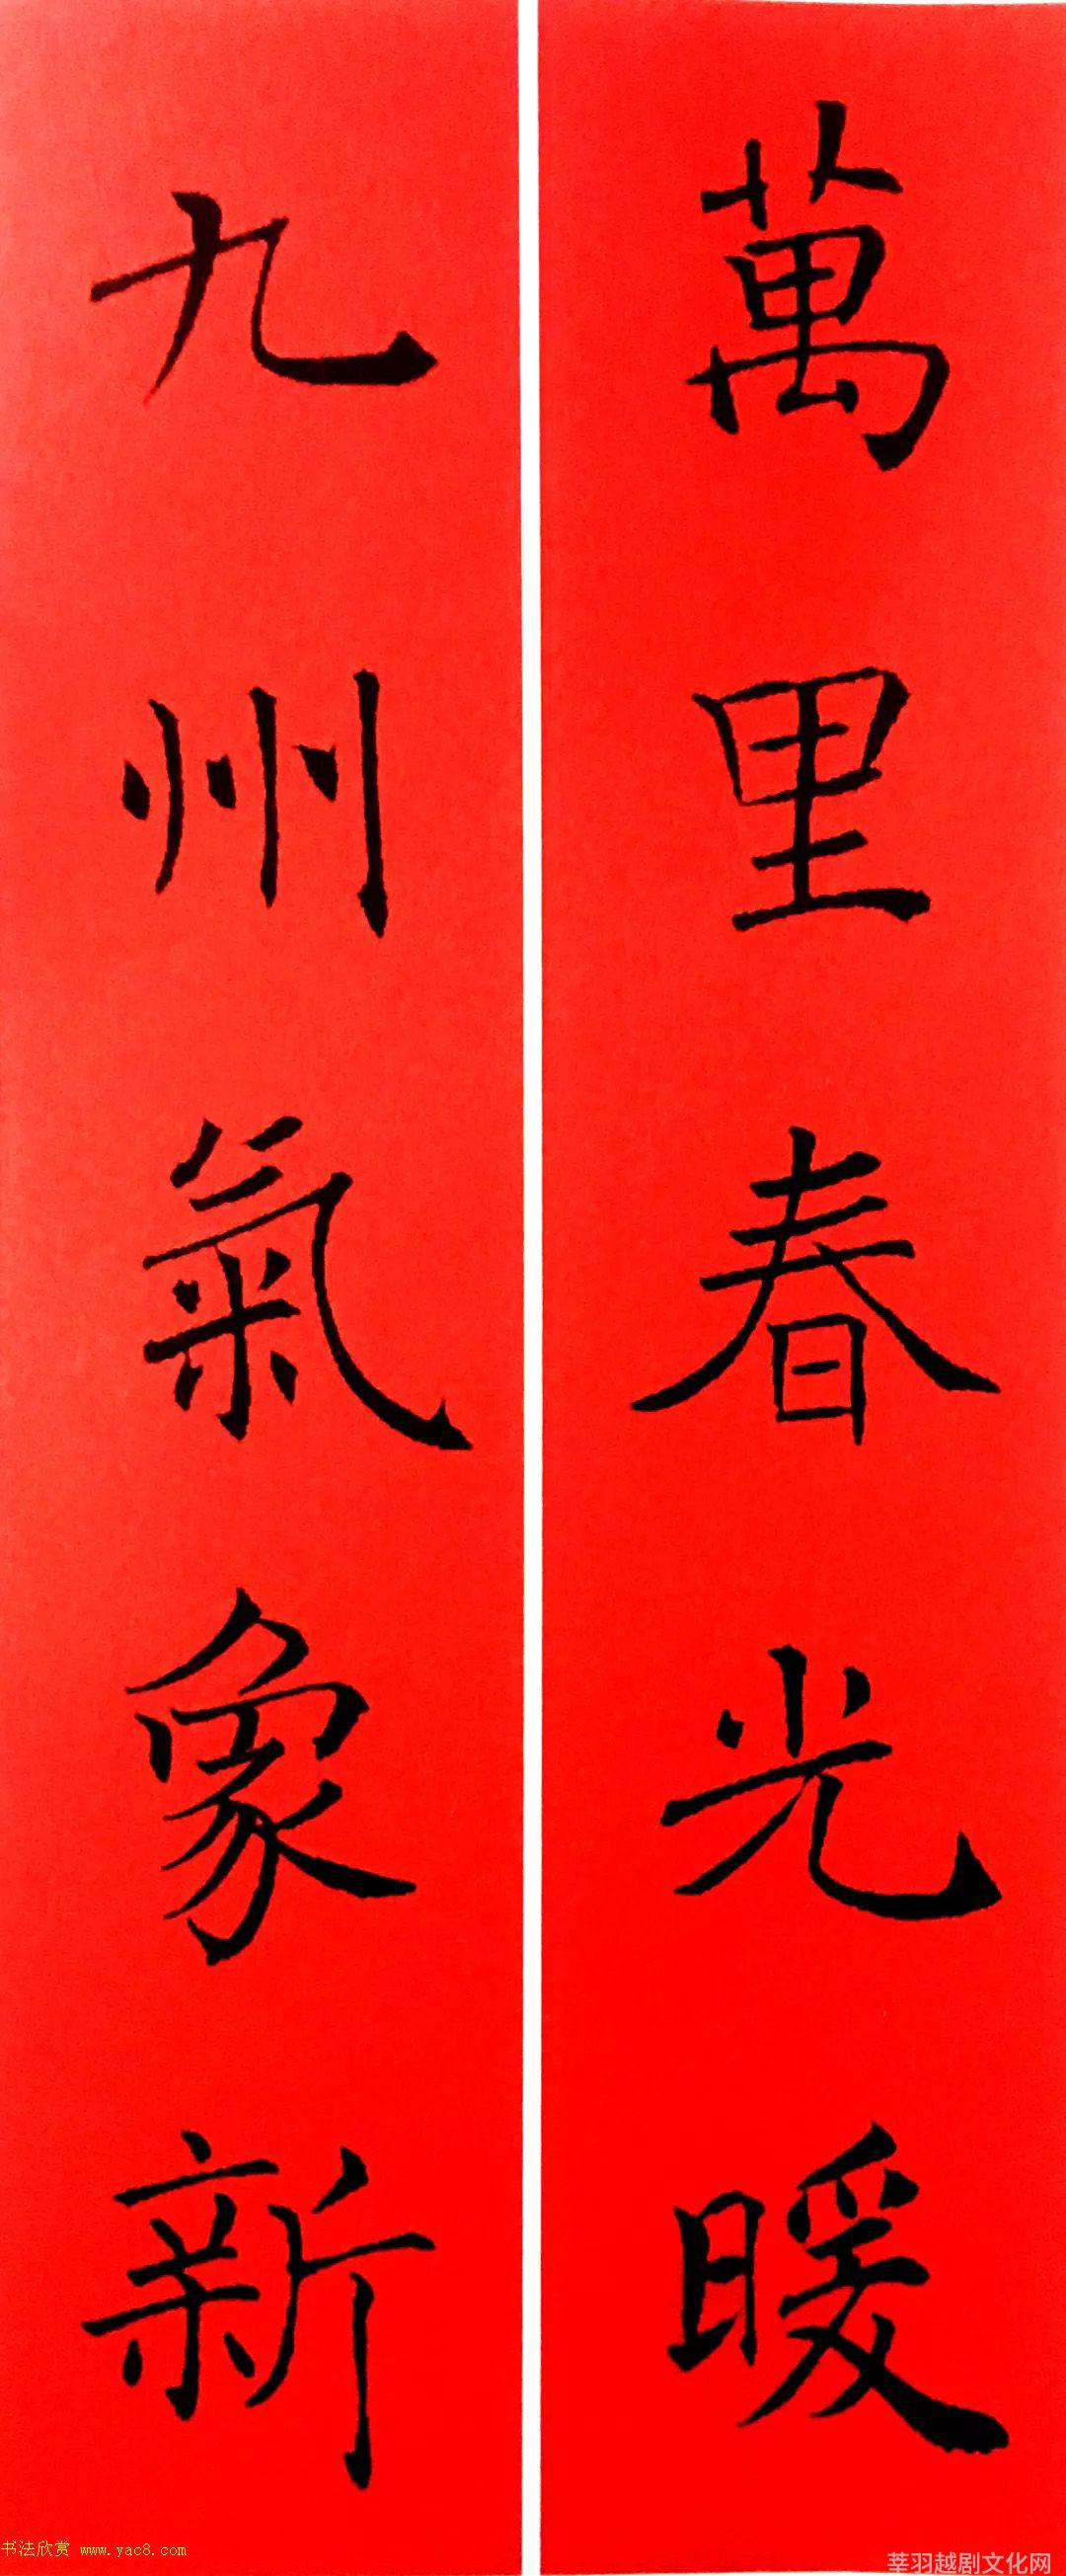 萬里春光暖
九州氣象新
书法欣赏 www.yac8.com
莘羽越剧文化网